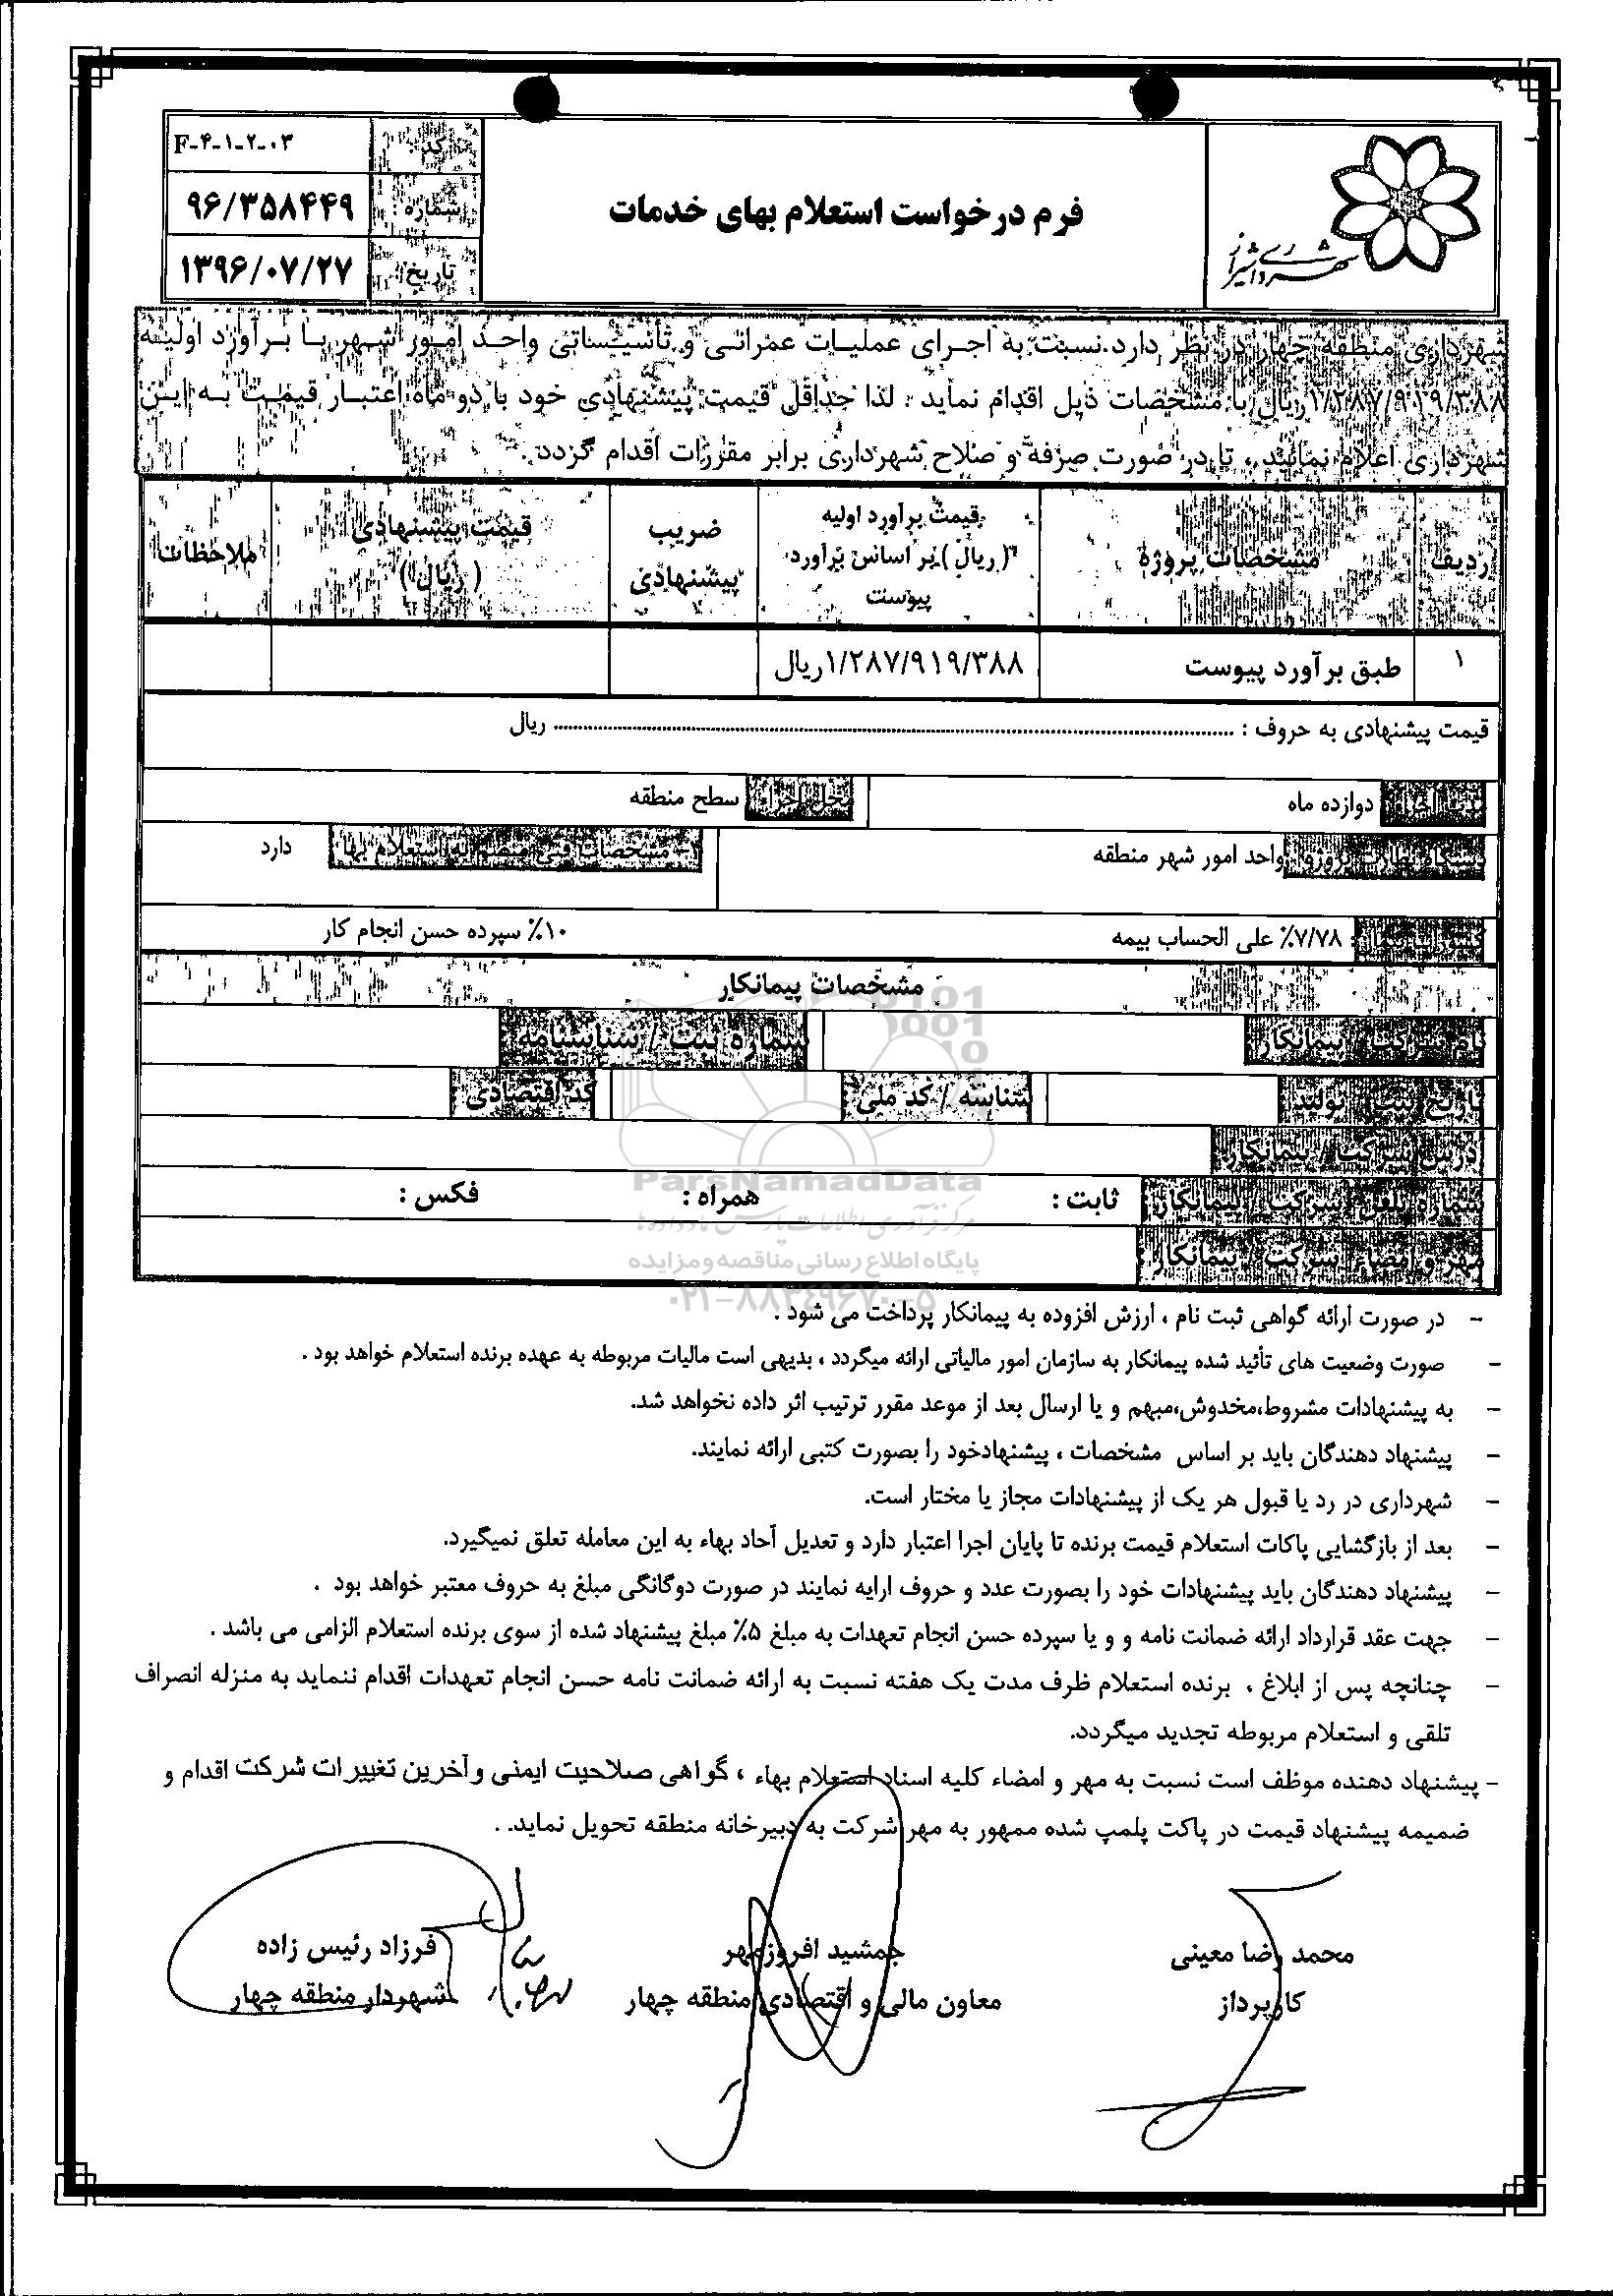 شهرداری شیراز
فرم درخواست استعلام بهای خدمات
کد : F-۴-۱-۲-۰۳
شماره : ۹۶/۳۵۸۴۴۹
تاریخ : ۱۳۹۶/۰۷/۲۷
شهرداری منطقه چهار در نظر دارد نسبت به اجرای عملیات عمرانی و تأسیساتی واحد امور شهر با برآورد اولیه
۱/۲۸۷/۹۱۹/۳۸۸ ریال با مشخصات ذیل اقدام نماید . لذا حداقل قیمت پیشنهادی خود با دو ماه اعتبار قیمت به این
شهرداری اعلام نمائید ، تا در صورت صرفه و صلاح شهرداری برابر مقررات اقدام گردد .
ردیف
مشخصات پروژه
قیمت برآورد اولیه
( ریال ) بر اساس برآورد
پیوست
ضریب
پیشنهادی
قیمت پیشنهادی
( ریال )
ملاحظات
۱
طبق برآورد پیوست
۱/۲۸۷/۹۱۹/۳۸۸ ریال
قیمت پیشنهادی به حروف : .......................................................... ریال
مدت اجرا : دوازده ماه
محل اجرا : سطح منطقه
دستگاه نظارت پروژه : واحد امور شهر منطقه
مشخصات فنی منضم به استعلام بها : دارد
۷/۷۸٪ علی الحساب بیمه
۱۰٪ سپرده حسن انجام کار
مشخصات پیمانکار
نام شرکت / پیمانکار
شماره ثبت / شناسنامه
تاریخ ثبت / تولید
شناسه / کد ملی
کد اقتصادی
آدرس شرکت / پیمانکار
شماره تلفن شرکت / پیمانکار
ثابت :
همراه :
فکس :
مهر و امضاء شرکت / پیمانکار
ParsNamadData
مرکز فرآوری اطلاعات پارس نماد داده ها
پایگاه اطلاع رسانی مناقصه و مزایده
۰۲۱-۸۸۳۴۹۶۷۰-۵
- در صورت ارائه گواهی ثبت نام ، ارزش افزوده به پیمانکار پرداخت می شود .
- صورت وضعیت های تأئید شده پیمانکار به سازمان امور مالیاتی ارائه میگردد ، بدیهی است مالیات مربوطه به عهده برنده استعلام خواهد بود .
- به پیشنهادات مشروط،مخدوش،مبهم و یا ارسال بعد از موعد مقرر ترتیب اثر داده نخواهد شد.
- پیشنهاد دهندگان باید بر اساس مشخصات ، پیشنهادخود را بصورت کتبی ارائه نمایند.
- شهرداری در رد یا قبول هر یک از پیشنهادات مجاز یا مختار است.
- بعد از بازگشایی پاکات استعلام قیمت برنده تا پایان اجرا اعتبار دارد و تعدیل آحاد بهاء به این معامله تعلق نمیگیرد.
- پیشنهاد دهندگان باید پیشنهادات خود را بصورت عدد و حروف ارایه نمایند در صورت دوگانگی مبلغ به حروف معتبر خواهد بود .
- جهت عقد قرارداد ارائه ضمانت نامه و و یا سپرده حسن انجام تعهدات به مبلغ ۵٪ مبلغ پیشنهاد شده از سوی برنده استعلام الزامی می باشد .
- چنانچه پس از ابلاغ ، برنده استعلام ظرف مدت یک هفته نسبت به ارائه ضمانت نامه حسن انجام تعهدات اقدام ننماید به منزله انصراف
تلقی و استعلام مربوطه تجدید میگردد.
- پیشنهاد دهنده موظف است نسبت به مهر و امضاء کلیه اسناد استعلام بهاء ، گواهی صلاحیت ایمنی و آخرین تغییرات شرکت اقدام و
ضمیمه پیشنهاد قیمت در پاکت پلمپ شده ممهور به مهر شرکت به دبیرخانه منطقه تحویل نماید. .
محمد رضا معینی
کارپرداز
جمشید افروزمهر
معاون مالی و اقتصادی منطقه چهار
فرزاد رئیس زاده
شهردار منطقه چهار